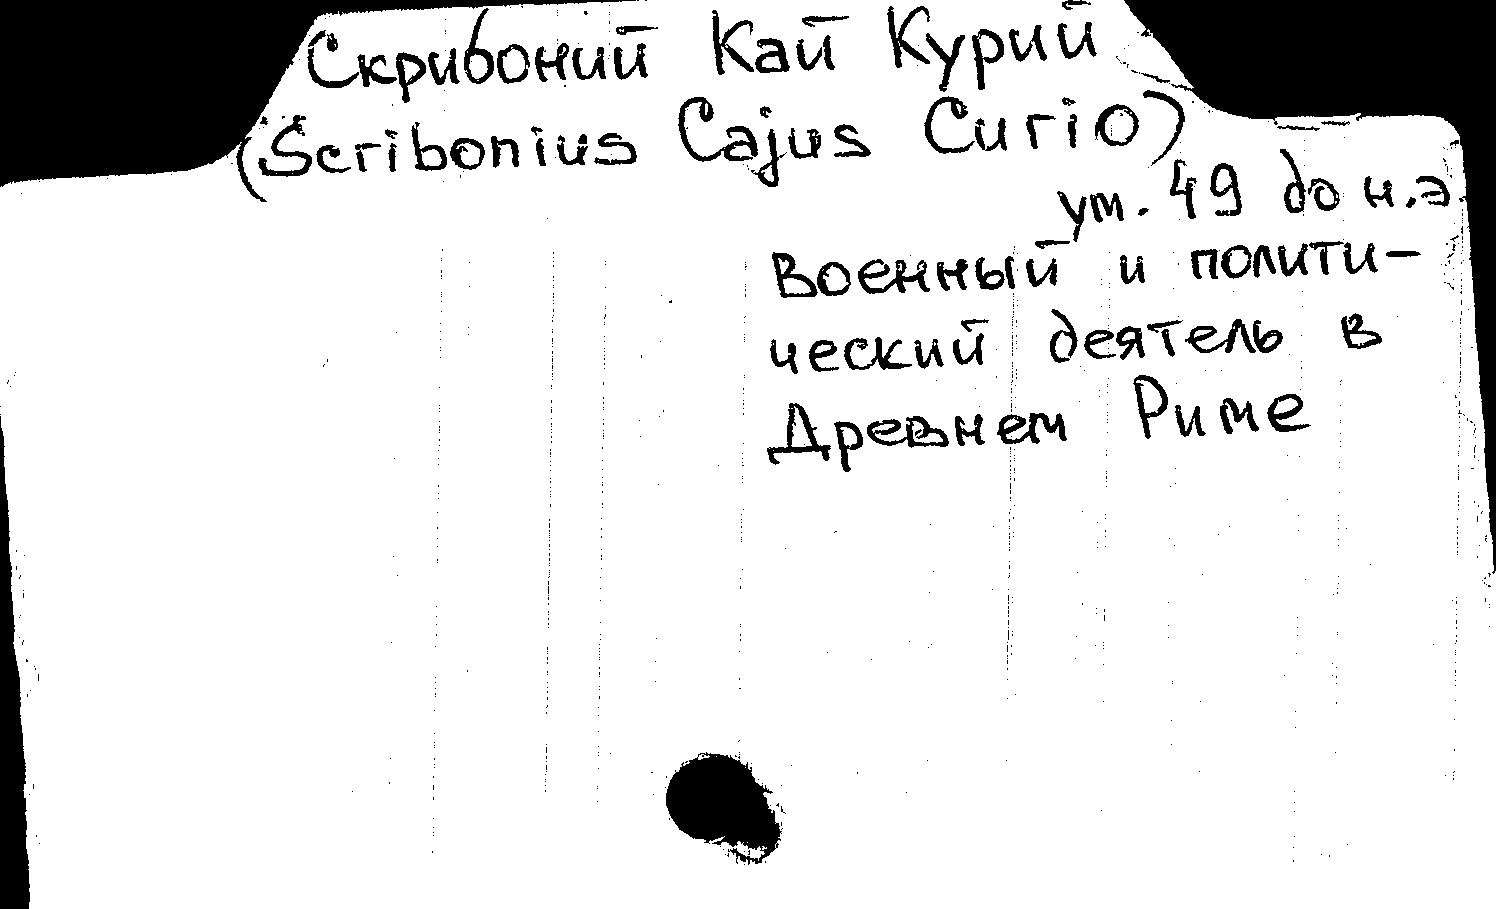 Скрибоний Кай Курий
(Scribonius Cajus Curio)
ум. 49 до н.э
Военный и полити-
ческий деятель в
Древнем Риме